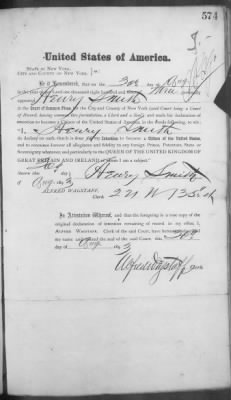 574
United States of America.
STATE OF NEW YORK,
CITY AND COUNTY OF NEW YORK,
Be it Remembered, That on the day of Aug
in the year of our Lord one thousand eight hundred and
appeared Henry Smith
Court of Common Pleas for the City and County of New York (said Court being a Court
of Record, having common law jurisdiction, a Clerk and a Seal), and made his declaration of
intention to become a Citizen of the United States of America, in the words following, to wit:
"I, Henry Smith
do declare on oath, that it is bona fide my intention to become a Citizen of the United States,
and to renounce forever all allegiance and fidelity to any foreign Prince, Potentate, State or
Sovereignty whatever, and particularly to the QUEEN OF THE UNITED KINGDOM OF
GREAT BRITAIN AND IRELAND, of whom I am a subject."
Sworn this
day of Aug 3 Henry Smith
ALFRED WAGSTAFF, Clerk.
In Attestation Whereof, and that the foregoing is a true copy of the
original declaration of intention remaining of record in my office, I,
ALFRED WAGSTAFF, Clerk of the said Court, have hereunto subscribed
my name and affixed the seal of the said Court, this
day of Aug 3
Alfred Wagstaff Clerk